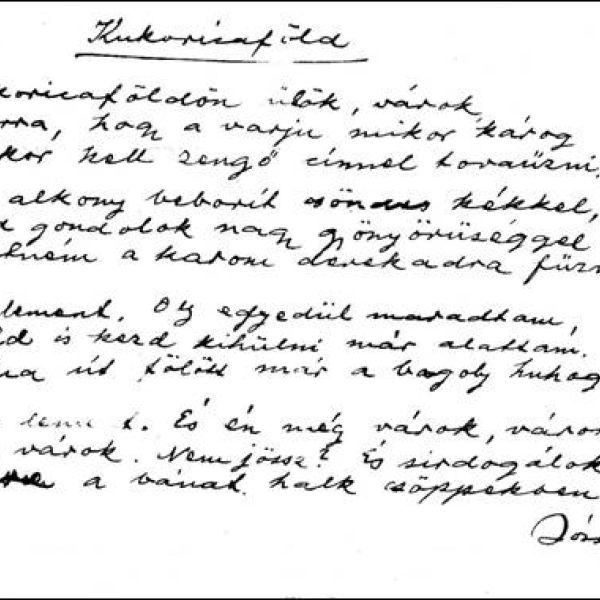 Kukoricaföld
koricaföldön ülök, várok,
rra, hogy a varju mikor károg
kor kell zengő cinnel tovaűzni,
alkony beborit csöndes kékkel,
gondolok nagy gyönyörüséggel
ném a karom derekadra fűzn
lement. Oly egyedül maradtam,
ld is kezd kihülni már alattam.
na út fölött már a bagoly huhog
lement. És én még várok, várok
várok. Nem jössz? És sirdogálok
a bánat halk csöppekben
Józs